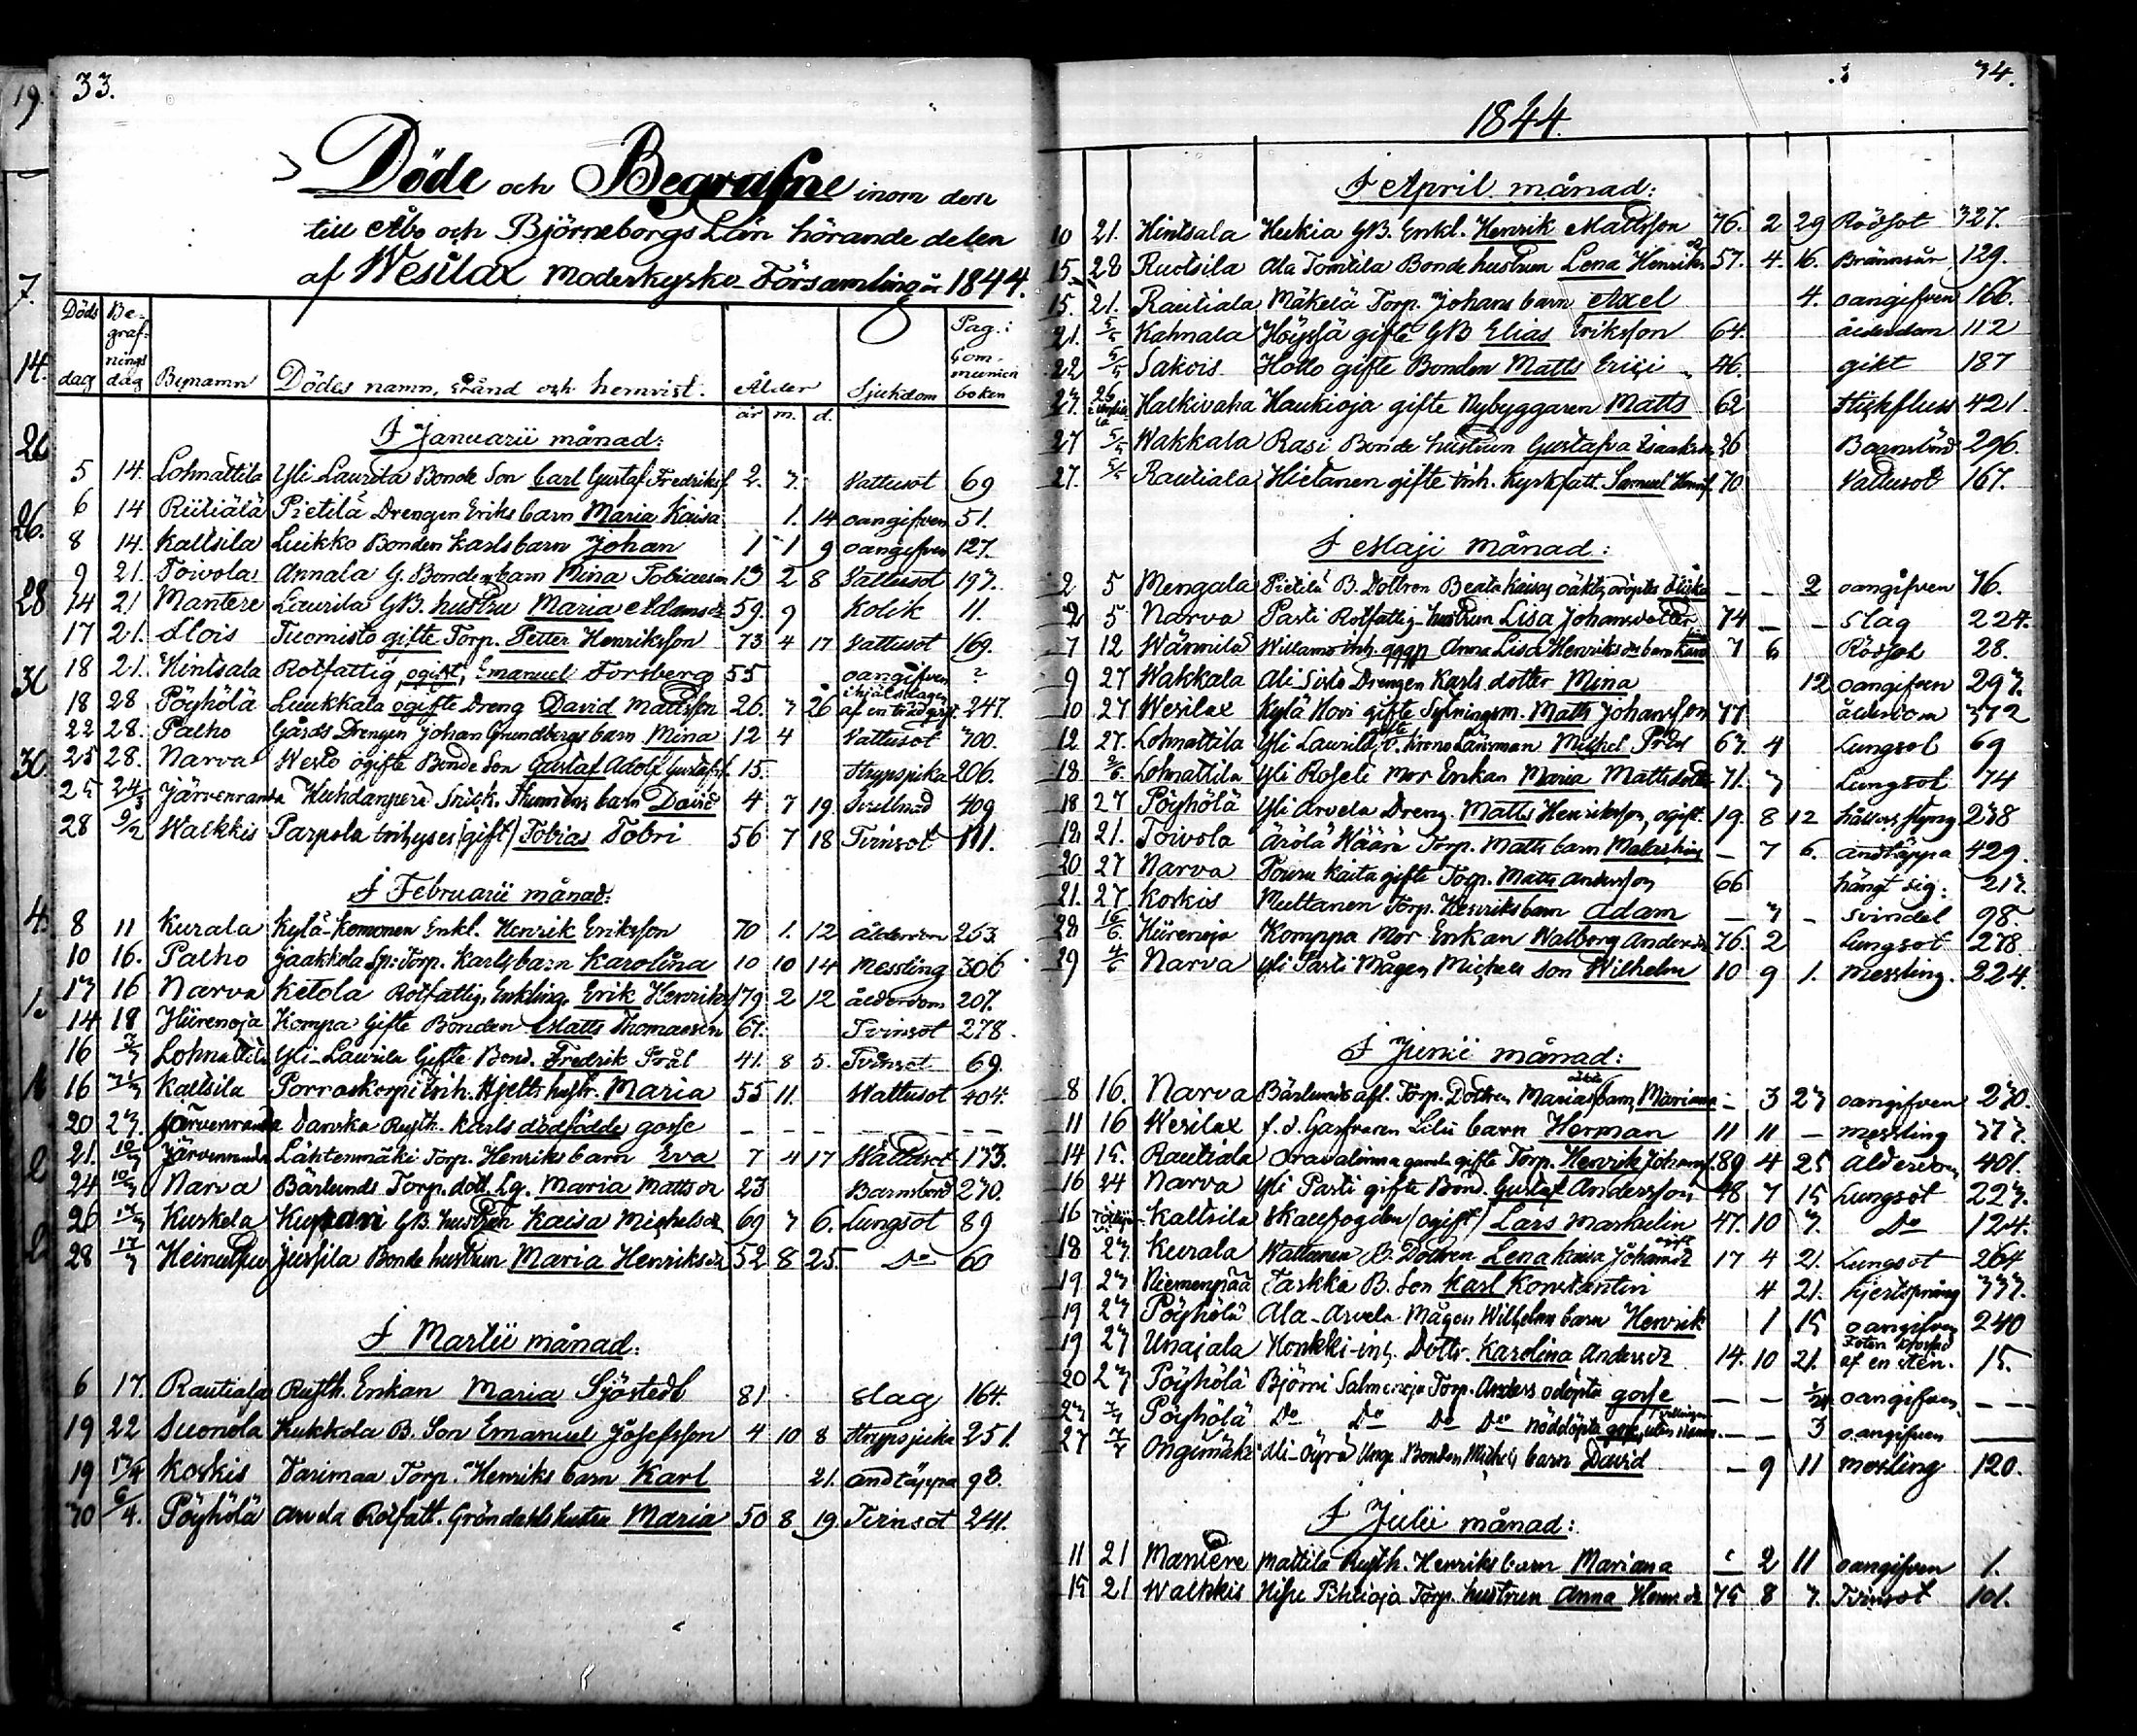 33.
Döde och Begrafne inom den
till Åbo och Björneborgs Län hörande delen
af Wesilax moderkyrko Församling år 1844.
Döds dag Begrafnings dag Bynamn Dödes namn, stånd och hemvist. Ålder Sjukdom Pag: Communion boken
år m. d.
I Januarii månad:
5 14. Lohnattila Yli-Laurila Bonde Son Carl Gustaf Fredriks 2. 7. Vattusot 69
6 14 Riitiälä Pietilä Drengen Eriks barn Maria Kaisa 1. 14 oangifven 51.
8 14. Kaltsila Luikko Bonden Karls barn Johan 1 1 9 oangifven 127.
9 21. Toivola Annala G. Bonden barn Mina Tobiaes 13 2 8 Vattusot 197.
14 21 Mantere Laurila GB. hustru Maria Adams dr 59. 9 Kolik 11.
17 21. Alois Tuomisto gifte Torp. Petter Henriksson 73 4 17 Vattusot 169.
18 21. Hintsala Rotfattig, ogift, Emanuel Forsberg 55 oangifven ?
18 28 Pöyhölä Luukkala ogifte Dreng David Mattsson 26. 7 26 ihjälslagen af en träd 247.
22 28. Palho Gårds Drengen Johan Grundbergs barn Mina 12 4 Vattusot 300.
25 28. Narva Westo ogifte Bonde Son Gustaf Adolf Gustafs 15. Strypsjuka 206.
25 24/3 Järvenranta Huhdanperä barn David 4 7 19. 409
28 9/2 Walkkis Parpola inhyses (gift) Tobias Tobri 56 7 18 Tvinsot 111.
I Februarii månad:
8 11 Kurala Kylä-Komonen Enkl. Henrik Eriksson 70 1. 12 ålderdom 263.
10 16. Palho Jaakkola Sp: Torp. Karls barn Karolina 10 10 14 Messling 306
13 16 Narva Ketola Rotfattig, Enkling, Erik Henriks 79 2 12 ålderdom 207.
14 18 Hiirenoja Kompa Gifte Bonden Matts Thomasson 67. Tvinsot 278.
16 3/3 Lohnattila Yli-Laurila Gifte Bond. Fredrik Prål 41. 8 5. Tvinsot 69.
16 Kaltsila Porraskorpi inh. Hjelts hustr. Maria 55 11. Wattusot 404.
20 23. Järvenranta Danska Rusth. Karls dödfödde gosse – – – – –
21. 10/3 Järvenranta Lahtenmäki Torp. Henriks barn Eva 7 4 17 Wattusot 173.
24 10/3 Narva Bärlunds Torp. dott. Lg. Maria Matts dr 23 Barnsbörd 270.
26 Kurkela Kupari GB. hustrun Kaisa Michels dr 69 7 6. Lungsot 89
28 17/3 Jussila Bonde hustrun Maria Henriks dr 52 8 25. Do 60
I Martii månad:
6 17. Rautiala Rusth. Enkan Maria Sjöstedt 81 slag 164.
19 22 Suonola Kukkola B. Son Emanuel Josefsson 4 10 8 Strypsjuka 251.
19 Korkis Varimaa Torp. Henriks barn Karl 21. andtäppa 98.
30 6/4. Pöyhölä Arvela Rotfatt. Gröndahls hustru Maria 50 8 19. Tvinsot 241.
34.
1844.
I April månad:
10 21. Hintsala Heikia GB. Enkl. Henrik Mattsson 76. 2 29 Rödsot 327.
15. 28 Ruotsila Ala Tomtila Bonde hustrun Lena Henriks dr 57. 4. 16. Brännsår 129.
15. 21. Rautiala Mäkelä Torp. Johans barn Axel 4. oangifven 166.
21. 5/5 Kahnala Höyssä gifte GB Elias Eriksson 64. ålderdom 112
22 5/5 Sakois Hollo gifte Bonden Matts Erici 46. gikt 187
23. 26 Halkivaha Haukioja gifte Nybyggaren Matts 62 Stickfluss 421.
27 5/5 Wakkala Rasi Bonde hustrun Gustafva Isaaks dr 26 Barnsbörd 296.
27. 5/5 Rautiala Hietanen gifte inh. Kyrkfatt. Samuel Henrs 70 Vattusot 167.
I Maji månad:
2 5 Mengala Pietilä B. Dottron Beata Kaisas oäkta odöpte flicka – – 2 oangifven 76.
2 5 Narva Pasti Rotfattig hustrun Lisa Johansdotter 74 – – Slag 224.
7 12 Wännilä Willamo inh. Anna Lisa Henriks drs barn 7 6 Rödsot 28.
9 27 Wakkala Ali-Sisto Drengen Karls dotter Mina 12 oangifven 297.
10 27 Wesilax Kylä Hovi gifte Sykningsm. Matts Johansson 77 ålderdom 372
12 27. Lohnattila Yli Laurila gifte v. Krono Länsman Michel Prål 63. 4 Lungsot 69
18 2/6. Lohnattila Yli Roseli Mor Enkan Maria Mattsdotter 71. 7 Lungsot 74
18 27 Pöyhölä Yli Arvela Dreng. Matts Henriksson, ogift. 19. 8 12 håll och styng 238
19 21. Toivola Ärölä Wäärä Torp. Matts barn – 7 6. andtäppa 429.
20 27 Narva Pouru Kaita gifte Torp. Matts Andersson 66 hängt sig. 213.
21. 27. Korkis Multanen Torp. Henriks barn Adam – 7 – Svindel 98
28 16/6. Hiirenoja Komppa Mor Enkan Walborg Anders dr 76. 2 Lungsot 278.
29 Narva Yli Pasti Mågen Michels Son Wilhelm 10 9 1. messling. 224.
I Junii månad:
8 16. Narva Bärlunds afl. Torp. Dottren Marias oäkta barn, Mariana – 3 23 oangifven 270.
11 16 Wesilax f. d. Garfvaren Lilii barn Herman 11 11 – messling 377.
14 15. Rautiala Oravalinna gamla gifte Torp. Henrik Johans 89 4 25 Ålderdom 401.
16 24 Narva Yli Pasti gifte Bond. Gustaf Andersson 48 7 15 Lungsot 223.
16 Kaltsila Skallfogden (ogift) Lars Markelin 47. 10 7. Do 124.
18 23. Kurala Wallanen B. Dottren Lena Kaisa Johans dr ogift 17 4 21. Lungsot 264
19 23 Niemenpää Tarkka B. Son Karl Konstantin 4 21. hjertsprång 337.
19 23 Pöyhölä Ala-Arvela Mågen Wilhelms barn Henrik 1 15 oangifven 240
19 23 Unajala Honkki-inh. Dottr. Karolina Anders dr 14. 10 21. Foten krossad af en sten. 15.
20 23 Pöyhölä Björni Salmenoja Torp. Anders odöpta gosse – – 1/24 oangifven – – –
23 Pöyhölä Do Do Do Do nöddöpta gosse, utan namn – 3 oangifven –
27 Onginmäki Ali-Äyrä Unge Bonden Michels barn David – 9 11 messling 120.
I Julii månad:
11 21 Mantere Mattila Rusth. Henriks barn Mariana – 2 11 oangifven 1.
15 21 Walkkis Torp. hustrun Anna Henr. dr 75 8 7. Tvinsot 101.